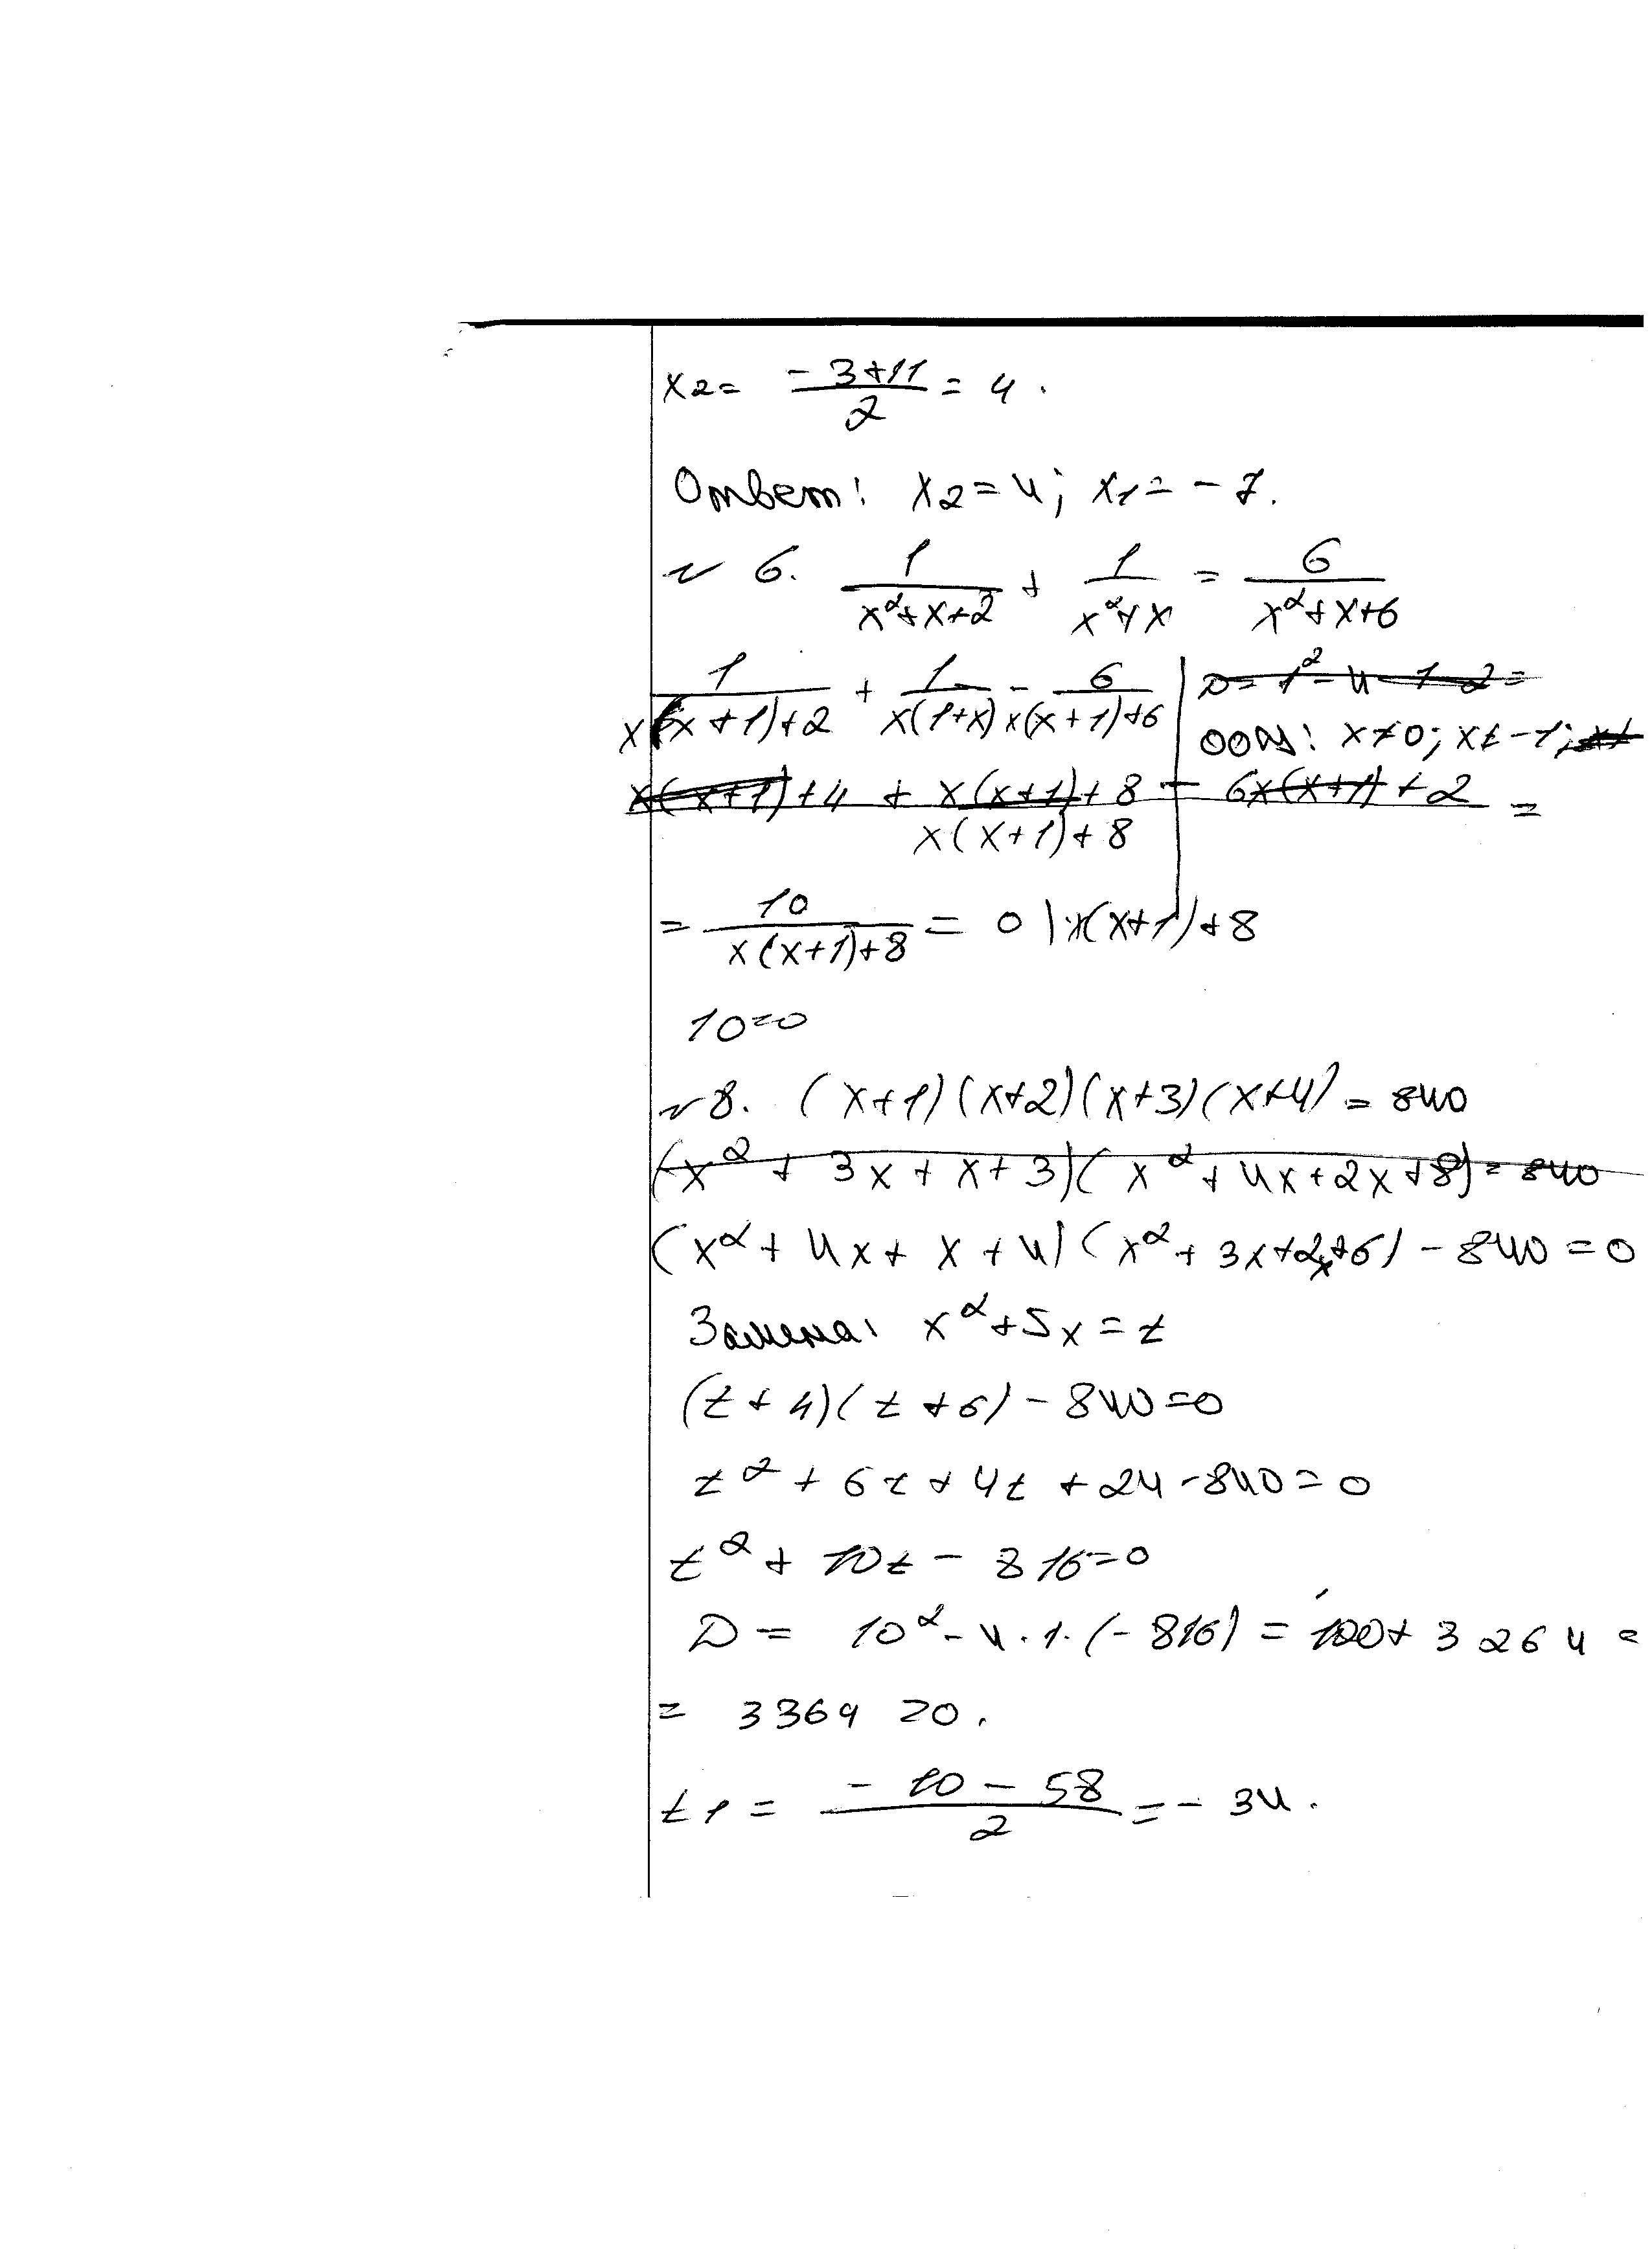 x2 = (-3+11)/2 = 4.
Ответ: x2=4; x1=-7.
№ 6. 1/(x²+x+2) + 1/(x²+x) = 6/(x²+x+6)
1/(x(x+1)+2) + 1/(x(1+x)) - 6/(x(x+1)+6) | D=1²-4·1·2=
ООУ: x≠0; x≠-1;
(x(x+1)+4 + x(x+1)+8 - 6x(x+1)+2)/(x(x+1)+8) =
= 10/(x(x+1)+8) = 0 | x(x+1)+8
10=0
№8. (x+1)(x+2)(x+3)(x+4) = 840
(x²+3x+x+3)(x²+4x+2x+8)=840
(x²+4x+x+4)(x²+3x+2x+6)-840=0
Замена: x²+5x=t
(t+4)(t+6)-840=0
t²+6t+4t+24-840=0
t²+10t-816=0
D= 10²-4·1·(-816)=100+3264=
= 3364 >0.
t1 = (-10-58)/2 = -34.